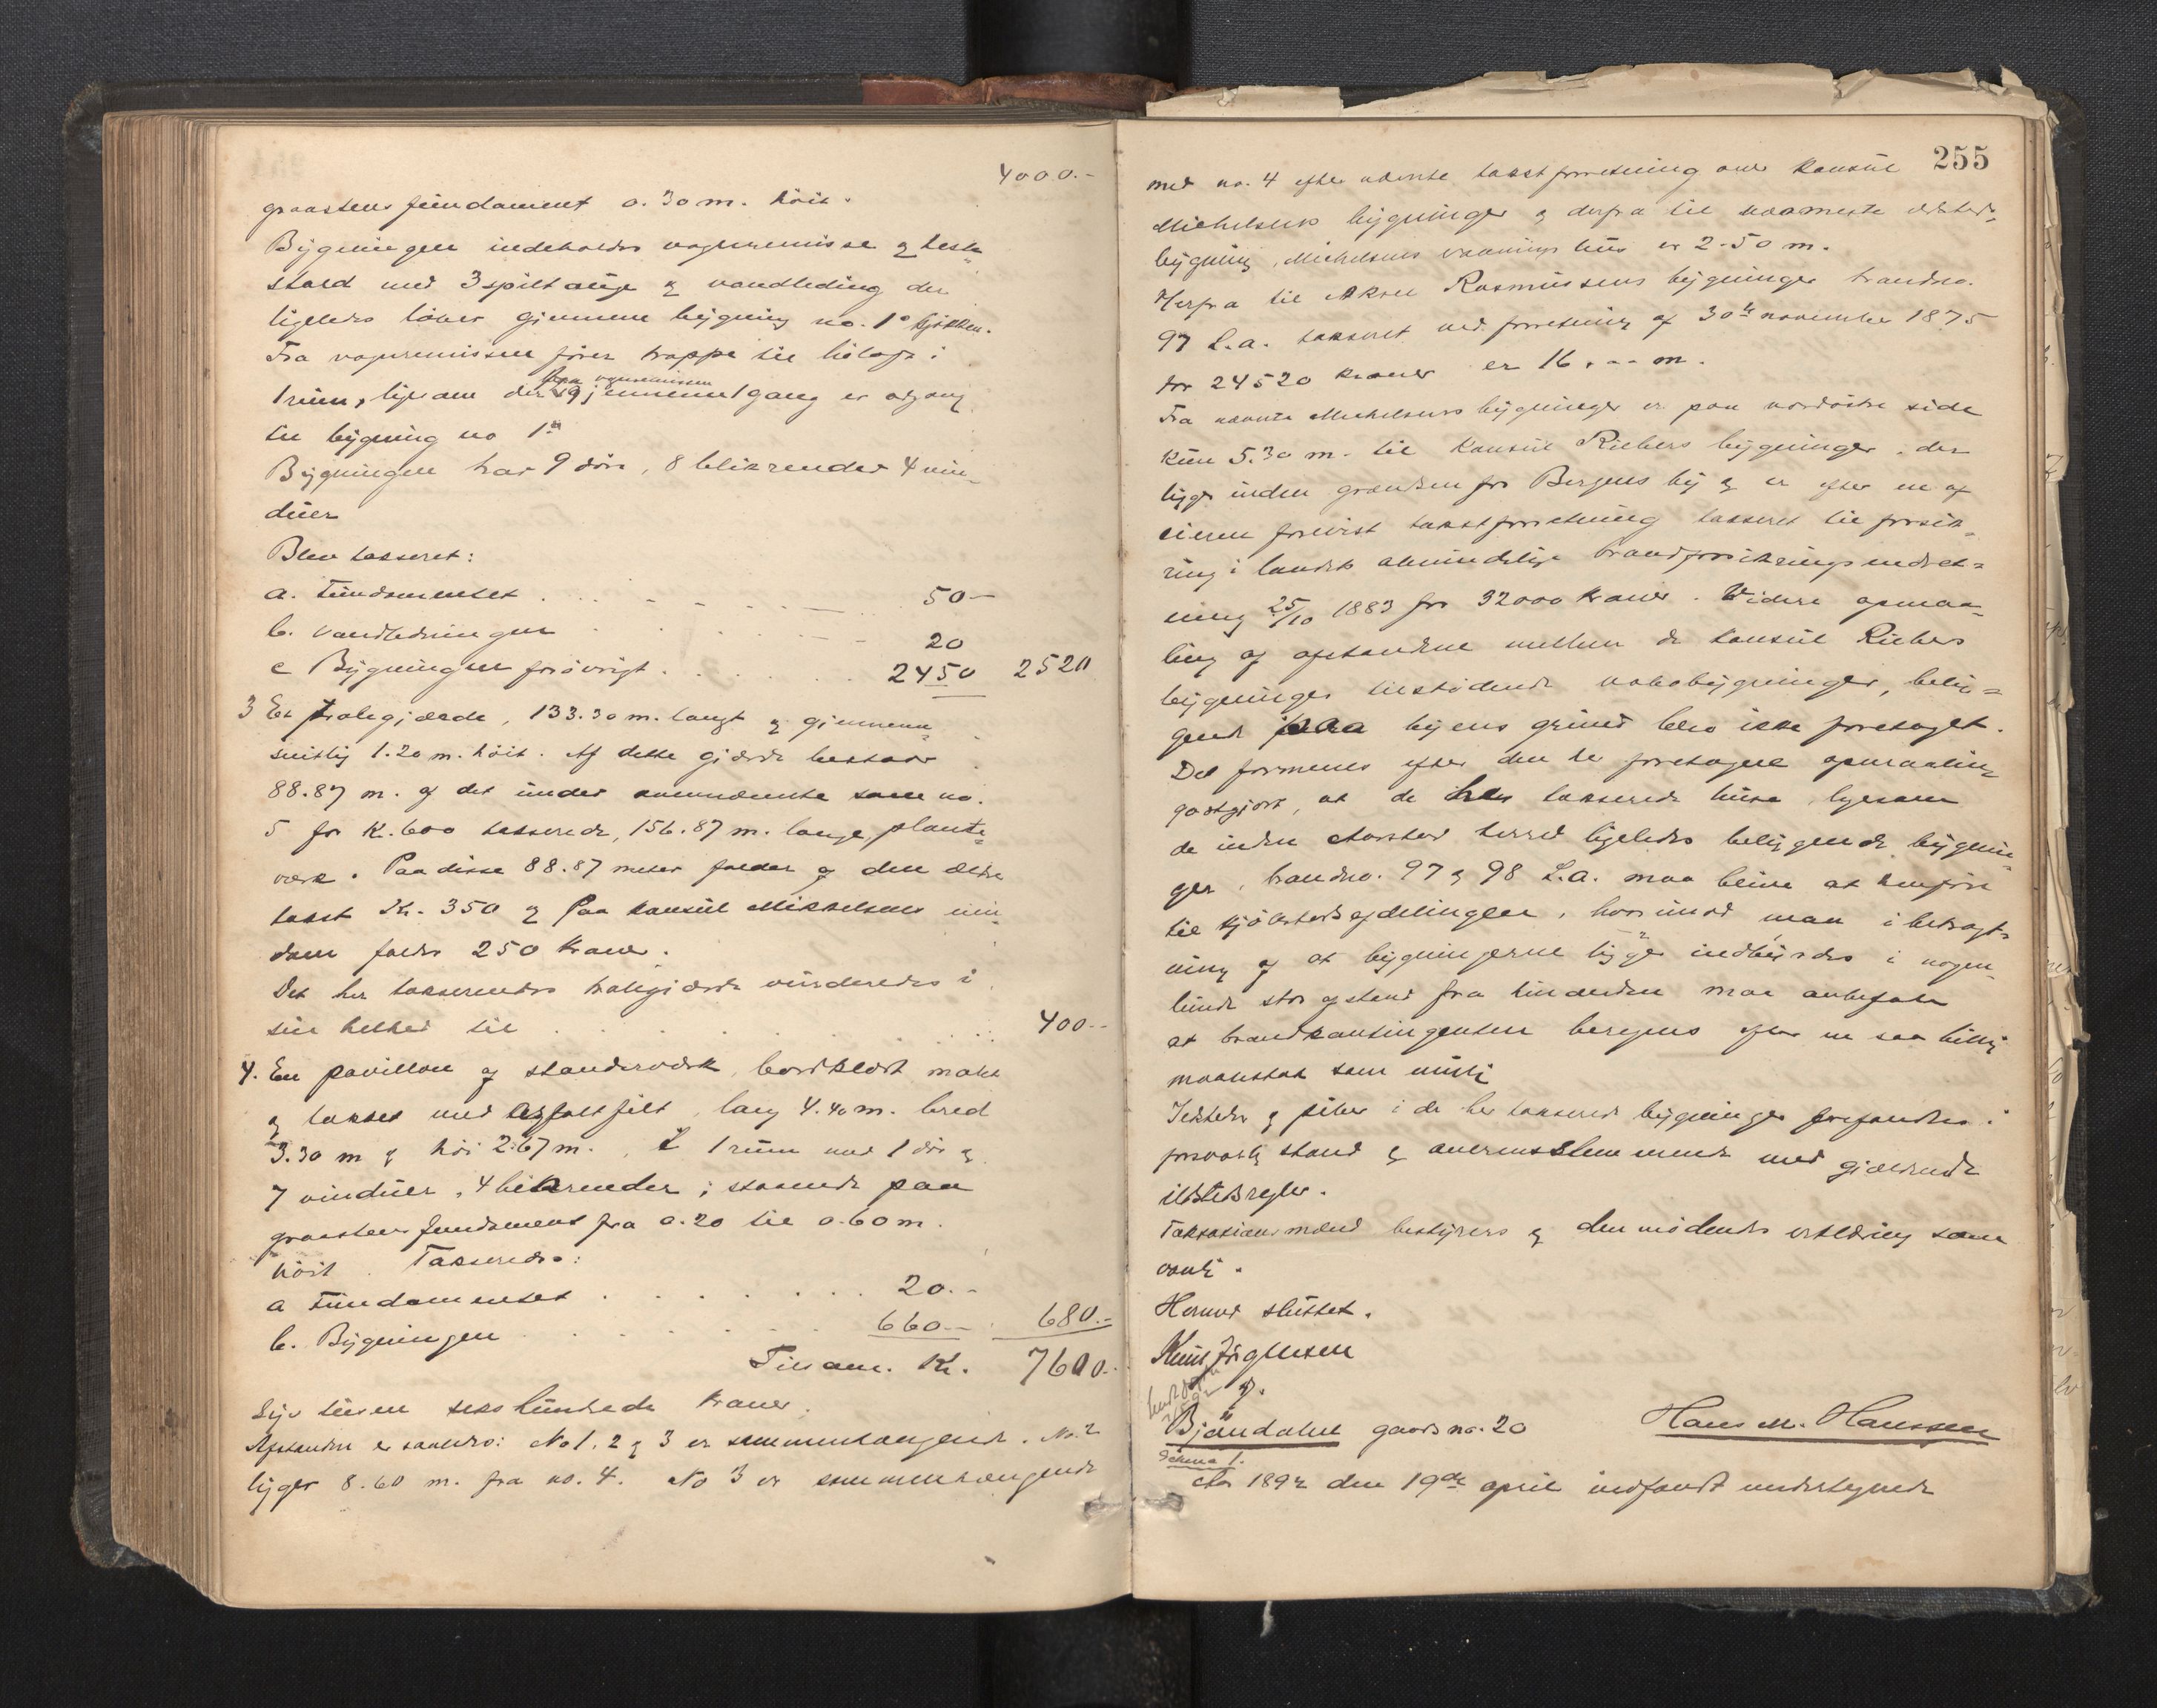 4000.-
graastens fundament 0.30 m. höit.
Bygningen indeholder vognremisse & hest-
stald med 3 spiltauge & vandledning der
ligeledes löber gjennem bygning no. 1s kjökken.
Fra vognremissen förer trappe til hölage i
1 rum, ligesom der fra vognremissen gjennem 1 gang er adgang
til bygning no 1.
Bygningen har 9 döre, 8 blikrender 4 vin-
duer
Blev takseret:
a. Fundamentet . . . 50-
b. Vandledningen . . . 20
c Bygningen forövrigt . . . 2450 2520
3 Et stakitgjærde, 133.30 m. langt & gjennem-
snitlig 1.20 m. höit. Af dette gjærde bestaar
88.87 m. af det under ovennævnte som no.
5 for K. 600 takserede, 156.87 m. lange, planke-
værk. Paa disse 88.87 meter falder af den ældre
takst Kr. 350 & paa konsul Mikkelsens eien-
dom falder 250 kroner.
Det her takserendes stakitgjærde vurderedes i
sin helhed til . . . 400.-
4. En pavillon af standerværk, bordklædt malet
& takket med asfaltfilt, lang 4.40 m. bred
3.30 m & höi 2.67 m., 1 rum med 1 dör &
7 vinduer, 4 blikrender; staaende paa
graastens fundament fra 0.20 til 0.60 m.
höit. Takseredes:
a Fundamentet . . . 20.-
b. Bygningen . . . 660.- 680.-
Tilsam. Kr. 7600.-
Syv tusen sekshundrede kroner.
Afstanden er saaledes: No 1. 2 & 3 er sammenhængende. No. 2
ligger 8.60 m. fra no. 4. No 3 er sammenhængende
255
med no. 4 efter nævnte takstforretning over konsul
Michelsens bygninger & derfra til nærmeste
bygning, Michelsens vaaningshus er 2.50 m.
Herfra til Aksel Rasmussens bygninger brandno.
97 L.a. takseret ved forretning af 30te november 1875
for 24520 kroner er 16.00 m.
Fra nævnte Michelsens bygninger er paa nordöstre side
kun 5.30 m. til konsul Riebers bygninger, der
ligger inden grændsen for Bergens by & er efter en af
eieren forevist takstforretning takseret til forsik-
ring i landets almindelige brandforsikringsindret-
ning 25/10 1883 for 32000 kroner. Videre opmaa-
ling af afstandene mellem de konsul Riebers
bygninger tilstödende nabobygninger, belig-
gende paa byens grund blev ikke foretaget.
Det formenes efter den her foretagne opmaaling
godtgjort, at de her takserede huse, ligesom
de inden Aarstad herred ligeledes beliggende bygnin-
ger, brandno. 97 & 98 L.a. maa blive at henföre
til kjöbstadsafdelingen, hvorimod man i betragt-
ning af at bygningerne ligger indbyrdes i nogen-
lunde stor afstand fra hinanden maa anbefale
at brandkontingenten beregnes efter en saa billig
maalestok som mulig
Ildsteder & piber i de her takserede bygninger forefandtes i
forsvarlig stand & overensstemmende med gjældende
ildstedsregler.
Taksationsmænd bestyrers & den mödendes erklæring som
vanlig.
Hermed sluttet.
Knut Jörgensen
Hans M. Hanssen
Bjöndalen gaards no. 20
Schema 1.
Aar 1892 den 19de april indfandt undertegnede